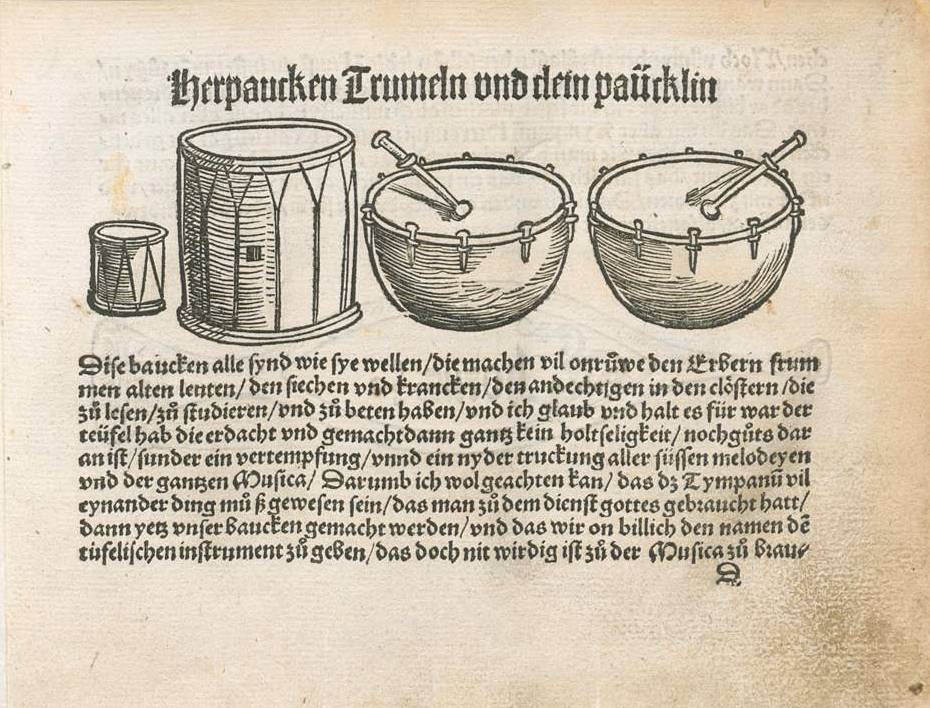 Herpaucken Trumeln vnd clein paücklin
Dise baucken alle synd wie sye wellen/die machen vil onrůwe den Erbern frum
men alten leuten/den siechen vnd krancken/den andechtigen in den clöstern/die
zů lesen/zů studieren/vnd zů beten haben/vnd ich glaub vnd halt es für war der
teüfel hab die erdacht vnd gemacht dann gantz kein holtseligkeit/nochgůts dar
an ist/sunder ein vertempfung/vnnd ein nyder truckung aller süssen melodeyen
vnd der gantzen Musica/Darumb ich wol geachten kan/das dz Tympanū vil
eynander ding můß gewesen sein/das man zů dem dienst gottes gebraucht hatt/
dann yetz vnser baucken gemacht werden/vnd das wir on billich den namen dē
tüfelischen instrument zů geben/das doch nit wirdig ist zů der Musica zů brau⸗
D